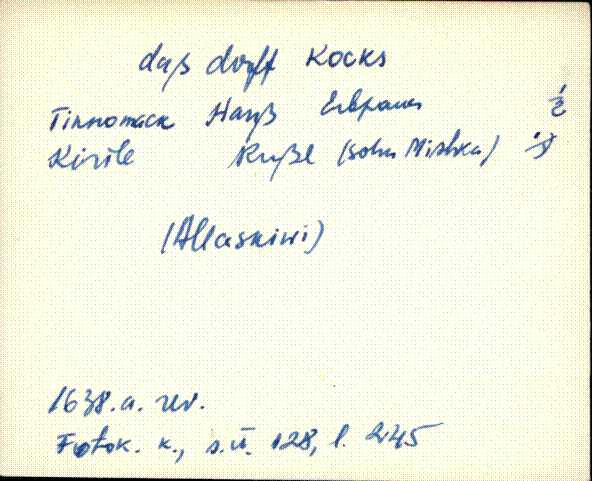 daß dorff Kocks
Tinnomack Hanß Erbpauer ½
Kirile Rußl (sohn Mishka)
(Allaskiwi)
1638.a. rev.
Fotok. k., s.ü. 128, l. 245